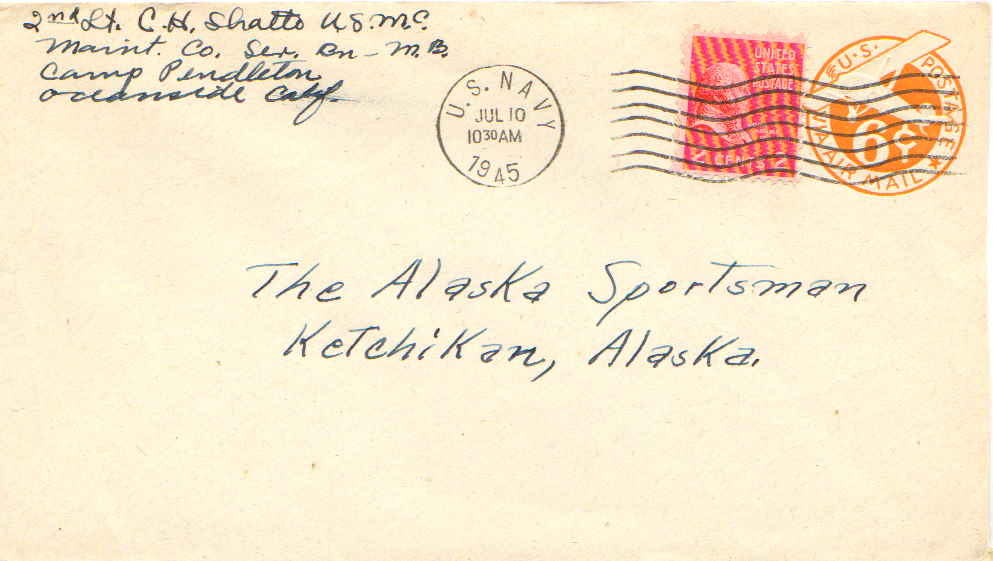 2nd Lt. C. H. Shatto U.S.M.C.
Maint. Co. Ser. Bn - M.B.
Camp Pendleton
Oceanside Calif.
U.S. NAVY
JUL 10
10 30 AM
1945
UNITED
STATES
POSTAGE
2 CENTS 2
U.S. POSTAGE
6¢
VIA AIR MAIL
The Alaska Sportsman
Ketchikan, Alaska.